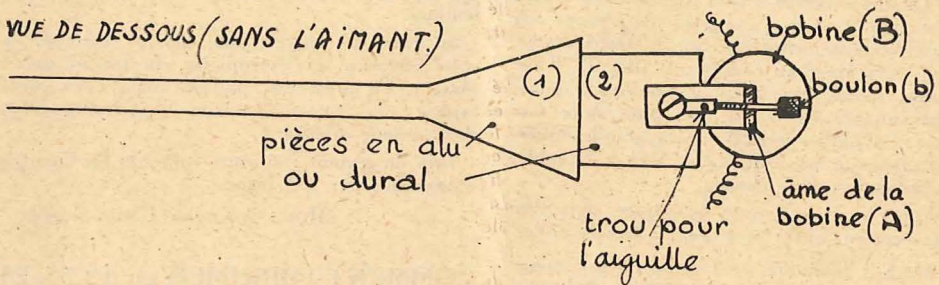 VUE DE DESSOUS (SANS L'AIMANT.)
bobine (B)
(1) (2)
boulon (b)
pièces en alu
ou dural
âme de la
bobine (A)
trou pour
l'aiguille